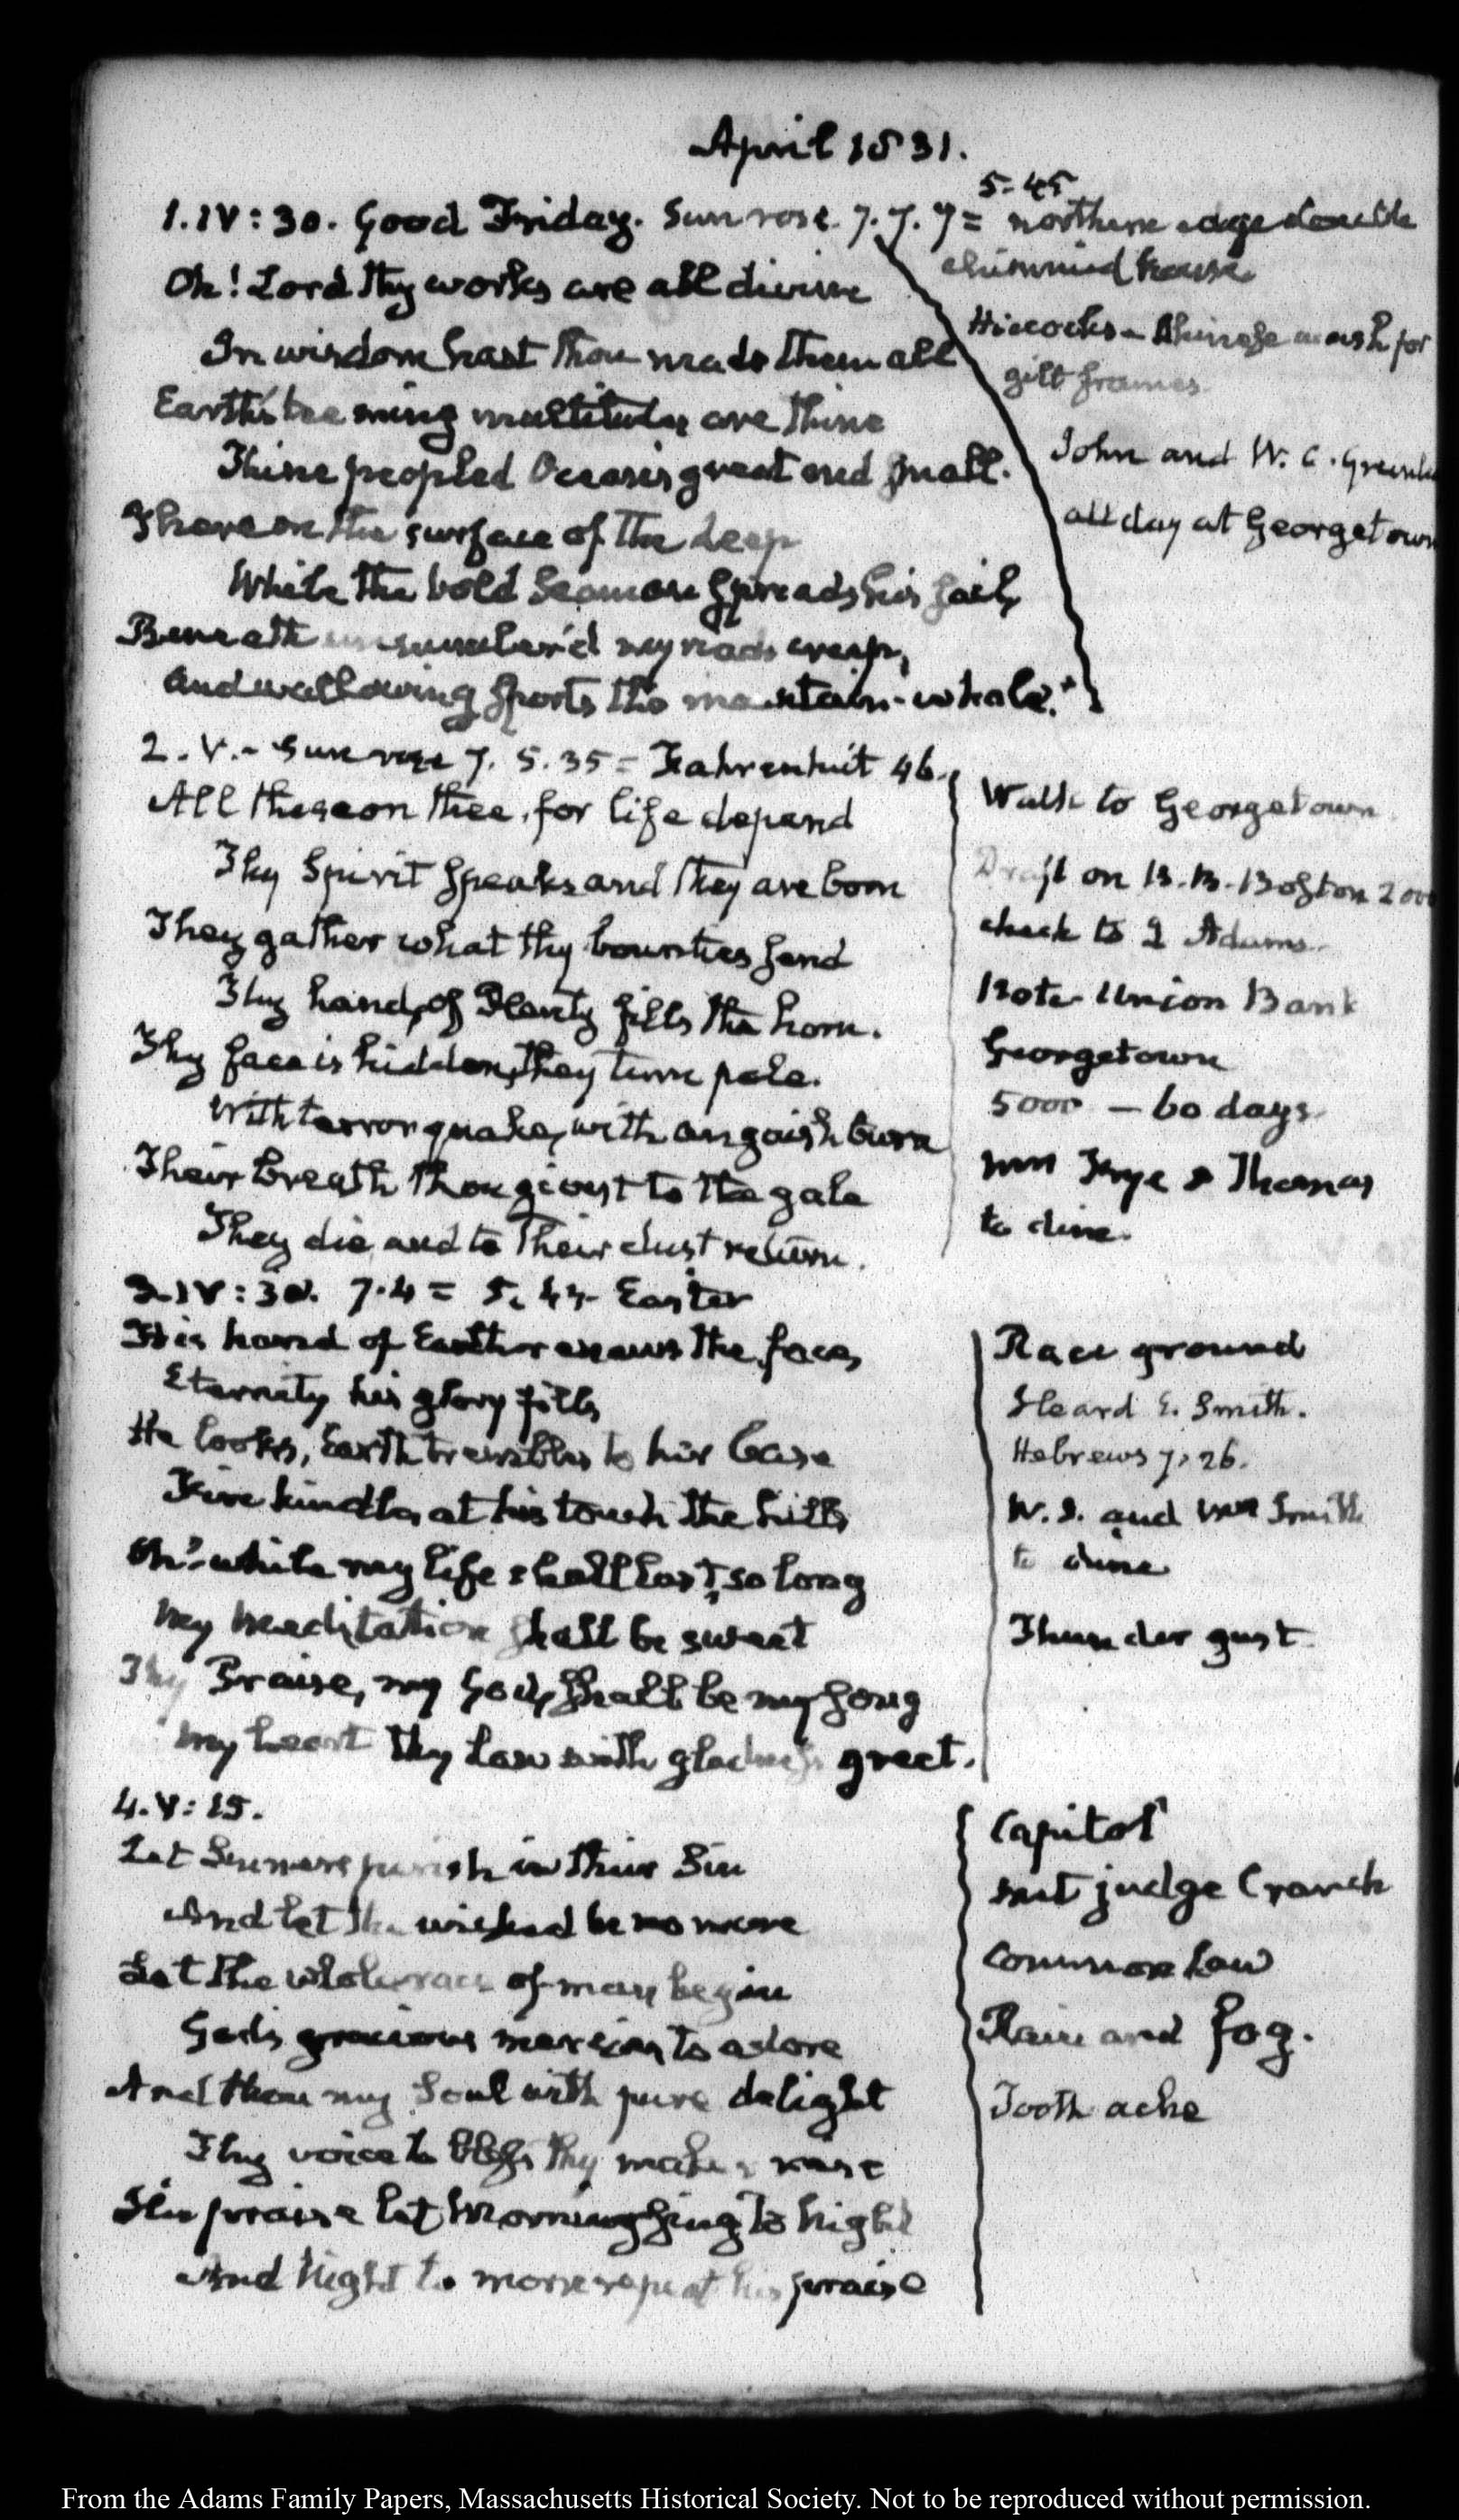 April 1831.
1. IV: 30. Good Friday. Sun rose. 7. 7. 7 = 5-45 northern edge double
chimnied house
Oh! Lord thy works are all divine
In wisdom hast thou made them all
Earth's teeming multitudes are thine
Thine peopled Oceans great and small.
There on the surface of the deep
While the bold Seaman spreads his sail,
Beneath unnumber'd myriads creep,
And wallowing sports the mountain-whale.
wash for
gilt frames
John and W. C.
all day at Georgetown
2. V.- Sun rose 7. 5.35 = Fahrenheit 46.
All these on thee, for life depend
Thy Spirit speaks and they are born
They gather what thy bounties send
Thy hand, of Plenty fills the horn.
Thy face is hidden, they turn pale.
With terror quake, with anguish burn
Their breath thou givest to the gale
They die, and to their dust return.
Walk to Georgetown
Draft on B. B. Boston 2000
check to Adams
Note Union Bank
Georgetown
5000 — 60 days
Frye & Thomas
to dine.
3. IV: 30. 7.4 = 5. Easter
His hand of Earth renews the face,
Eternity his glory fills
He looks, Earth trembles to her base
Fire kindles at his touch the hills
Oh! while my life shall last, so long
My meditation shall be sweet
Thy Praise, my God, shall be my song
My heart thy Law with gladness greet.
Race ground
Heard E. Smith.
Hebrews 7. 26.
W. S. and Smith
to dine
Thunder gust
4. V: 15.
Let Sinners perish in their Sin
And let the wicked be no more
Let the whole race of man begin
God's gracious mercies to adore
And thou my Soul with pure delight
Thy voice to bless thy maker raise
His praise let Morning sing to Night
And Night to morn repeat his praise
Capitol
met judge Cranch
Common Law
Rain and fog.
Tooth ache
From the Adams Family Papers, Massachusetts Historical Society. Not to be reproduced without permission.